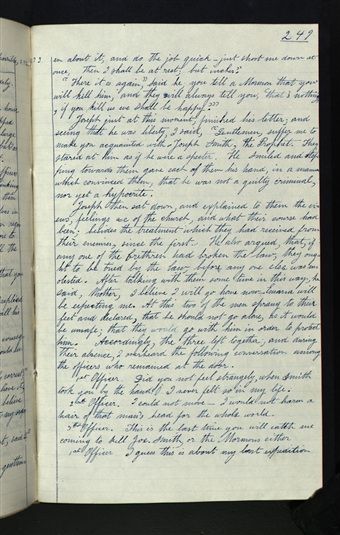 249
en about it, and do the job quick — just shoot me down at
once, then I shall be at rest; but make"
"There it is again" said he "you tell a Mormon that you
will kill him, and they will always tell you, 'that's nothing
if you kill us we shall be happy.'"
Joseph just at this moment finished his letter; and
seeing that he was at liberty, I said, "Gentlemen, suffer me to
make you acquainted with Joseph Smith, the Prophet. They
stared at him as if he were a specter. He smiled and step
ping towards them gave each of them his hand, in a manner
which convinced them, that he was not a guilty criminal,
nor yet a hypocrite.
Joseph then sat down, and explained to them the vi
ews, feelings &c of the church, and what their course had
been; besides the treatment which they had received from
their enemies, since the first. He also argued, that, if
any one of the brethren had broken the law, they oug
ht to be tried by the law, before any one else was mo
lested. After talking with them some time in this way, he
said, "Mother, I believe I will go home now — Emma will
be expecting me. At this two of the men sprang to their
feet and declared, that he should not go alone, as it would
be unsafe; that they would go with him in order to protect
him. Accordingly, the three left together, and during
their absence, I overheard the following conversation among
the officers who remained at the door.
1st Officer. Did you not feel strangely, when Smith
took you by the hand? I never felt so in my life.
2nd Officer. I could not move — I would not harm a
hair of that man's head for the whole world.
3rd Officer. This is the last time you will catch me
coming to kill Joe Smith, or the Mormons either
1st Officer I guess this is about my last expedition